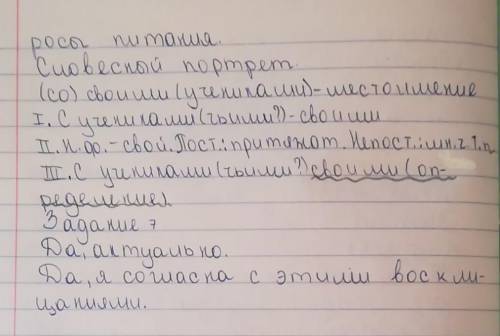 росы питания.
Словесный портрет.
(со) своими (учениками)-местоимение
I. С учениками (чьими?) - своими
II. Н.ф. - свой. Пост.: притяжат. Непост.: мн.ч. Т.п.
III. С учениками (чьими?) своими (оп-
ределение).
Задание 7
Да, актуально.
Да, я согласна с этими воскли-
цаниями.